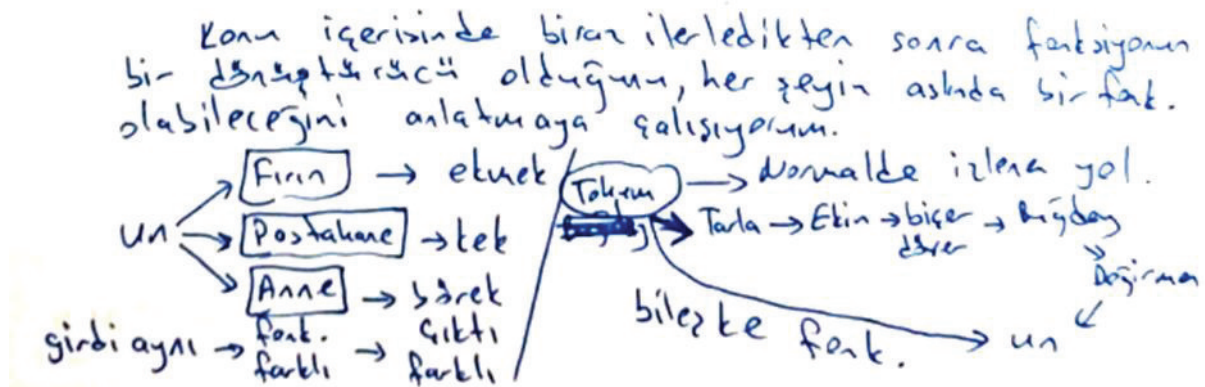 Konu içerisinde biraz ilerledikten sonra fonksiyonun
bir dönüştürücü olduğunu, her şeyin aslında bir fonk.
olabileceğini anlatmaya çalışıyorum.
un → Fırın → ekmek
→ Postahane → kek
→ Anne → börek
girdi aynı → fonk. farklı → çıktı farklı
Tohum → Normalde izlenen yol.
→ Tarla → Ekin → biçer döver → Buğday
→ Değirmen
→ un
bileşke fonk.